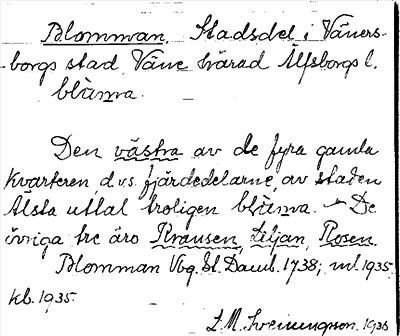 Blomman. Stadsdel i Väners-
borgs stad, Väne härad Älfsborgs l.
blåmma.
Den västra av de fyra gamla
kvarteren, d.v.s. fjärdedelarne, av staden
Älsta uttal troligen blåmma. – De
övriga tre äro Kransen, Liljan, Rosen.
Blomman Vbg. St. Daml. 1738; ml. 1935.
kb. 1935.
L. M. Sveinungsson. 1936